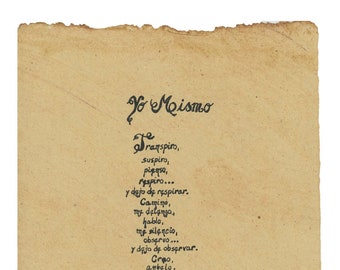 Yo Mismo
Transpiro,
suspiro,
pienso,
respiro...
y dejo de respirar.
Camino,
me detengo,
hablo,
me silencio,
observo...
y dejo de observar.
Creo,
anhelo